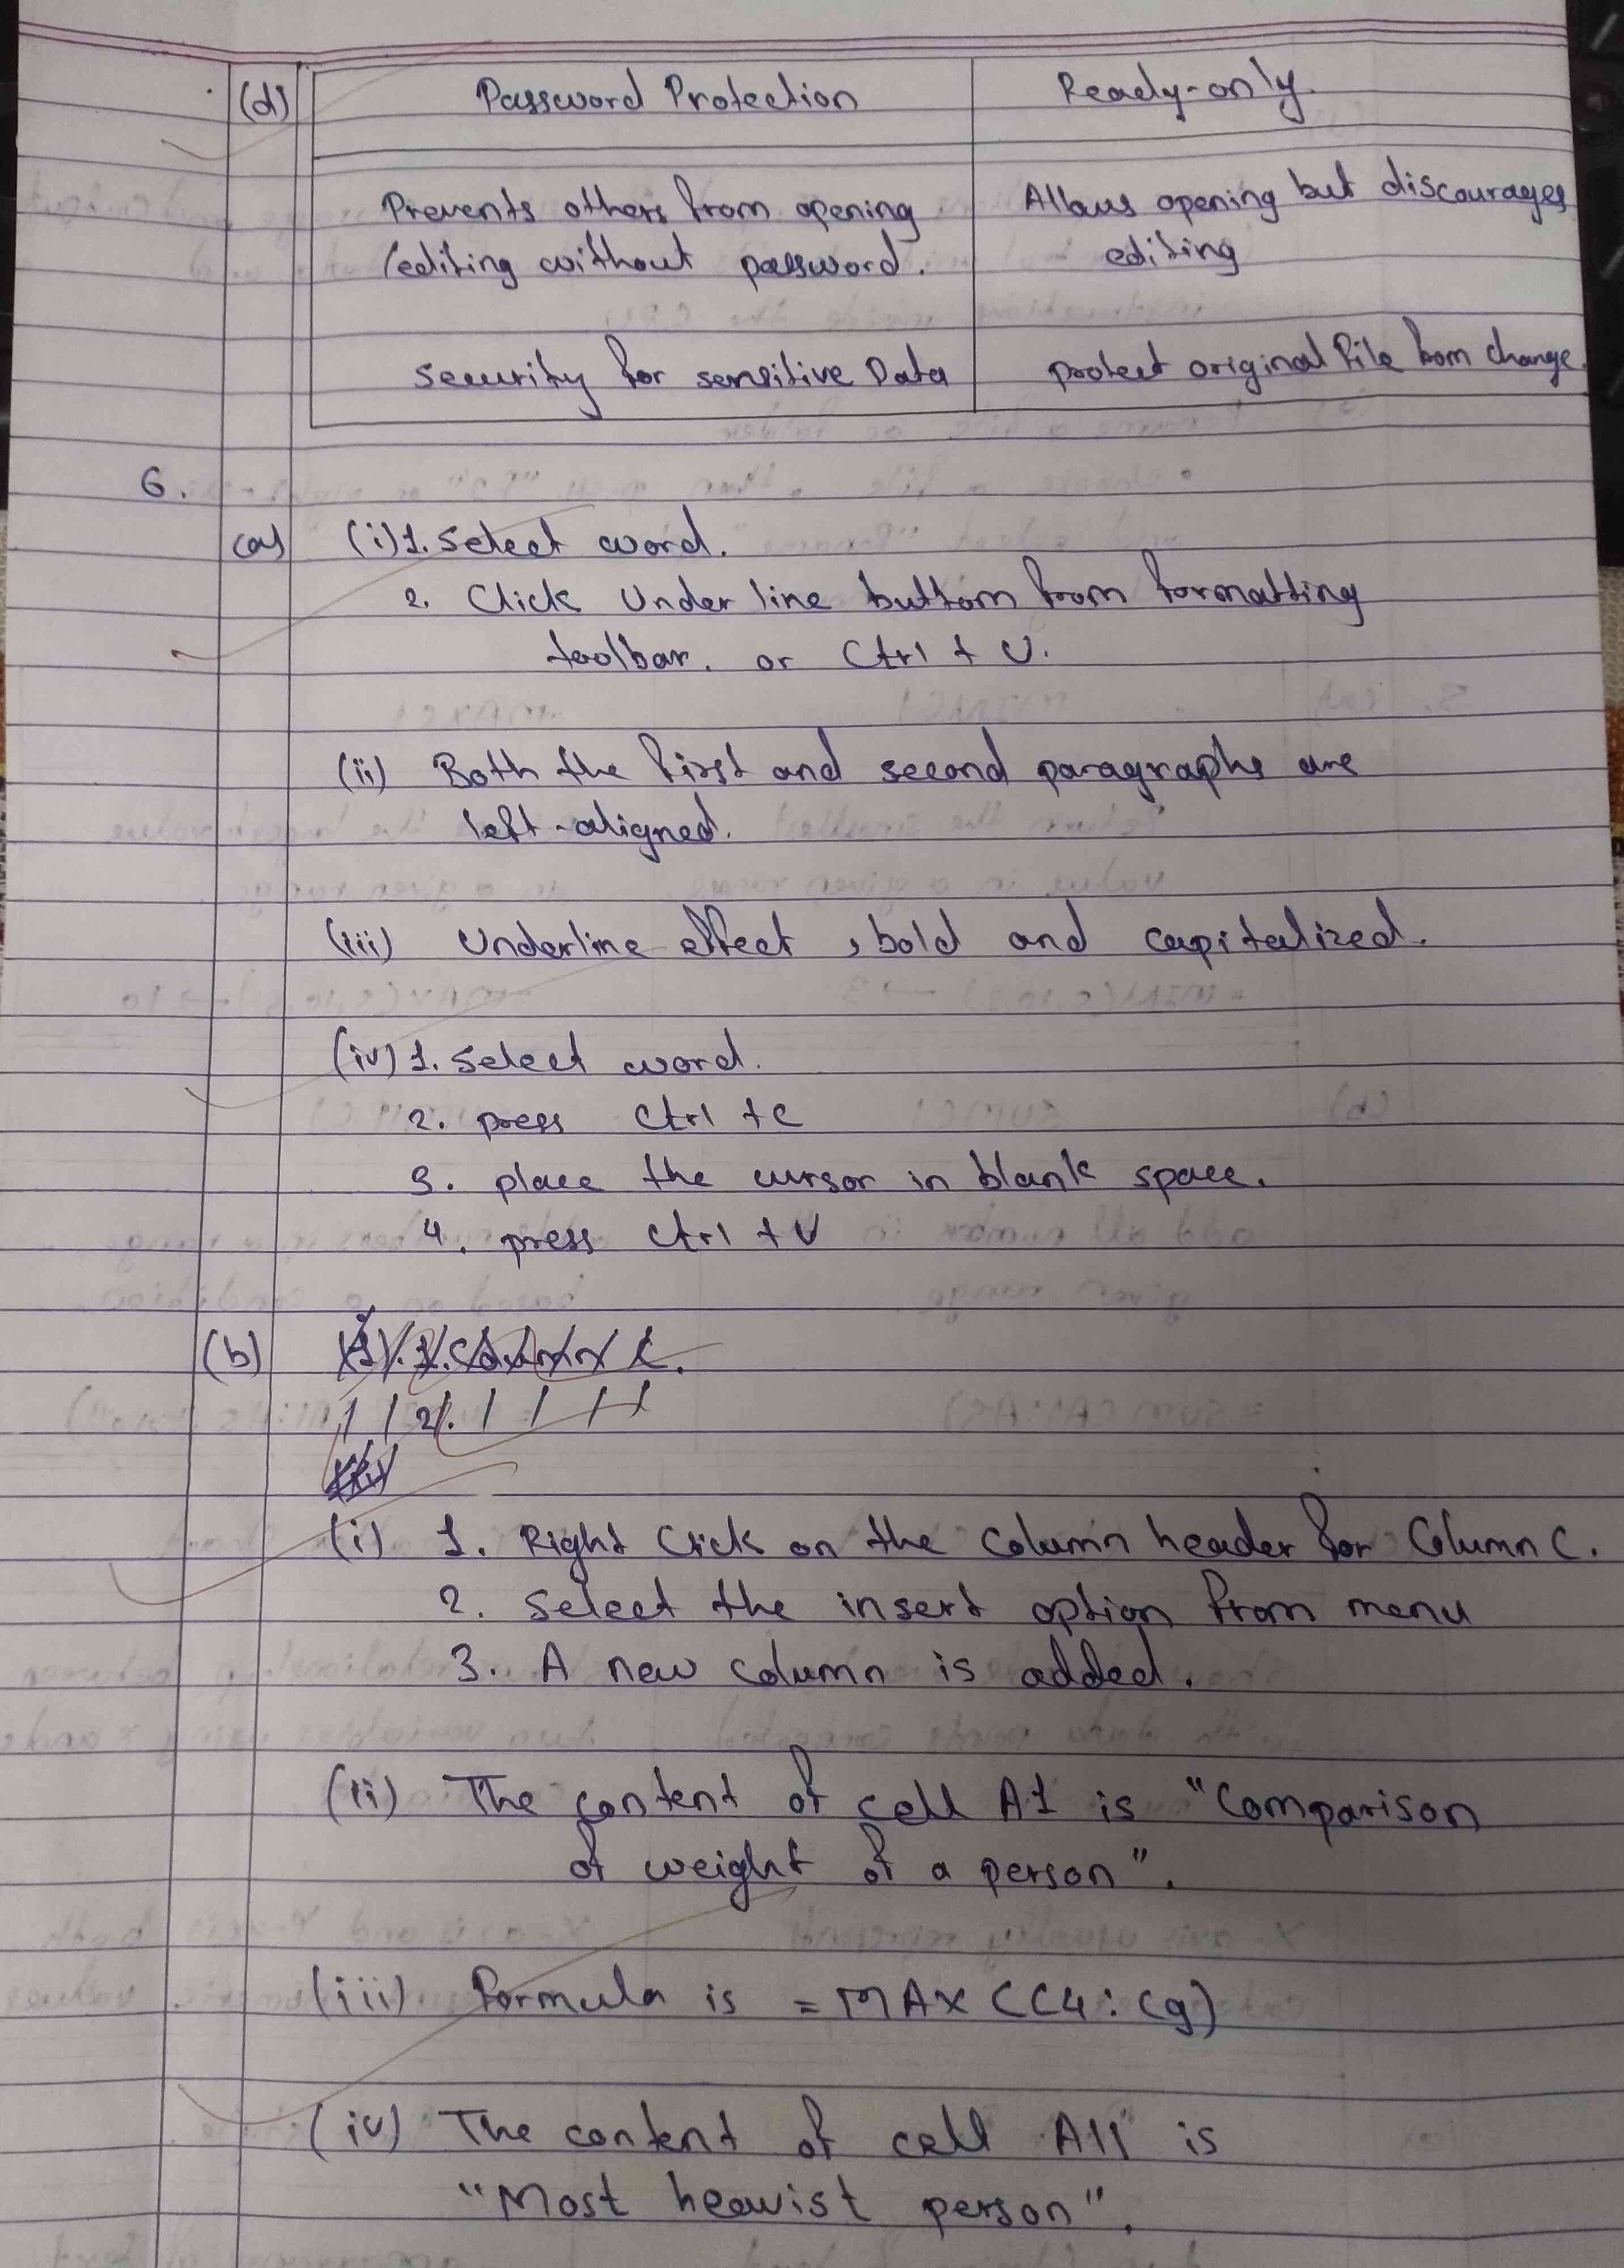 (d) Password Protection Ready-only.
Prevents others from opening Allows opening but discourages
/editing without password. editing
security for sensitive Data protect original file from change.
6.
(a) (i) 1. Select word.
2. Click Under line buttom from formatting
toolbar. or Ctrl + U.
(ii) Both the first and second paragraphs are
left-aligned.
(iii) Underline effect, bold and capitalized.
(iv) 1. Select word.
2. press Ctrl + C
3. place the cursor in blank space.
4. press ctrl + V
(b)
(i) 1. Right Click on the Column header for Column C.
2. Select the insert option from menu
3. A new column is added.
(ii) The content of cell A1 is "Comparison
of weight of a person".
(iii) Formula is = MAX (C4:C9)
(iv) The content of cell A11 is
"Most heavist person".